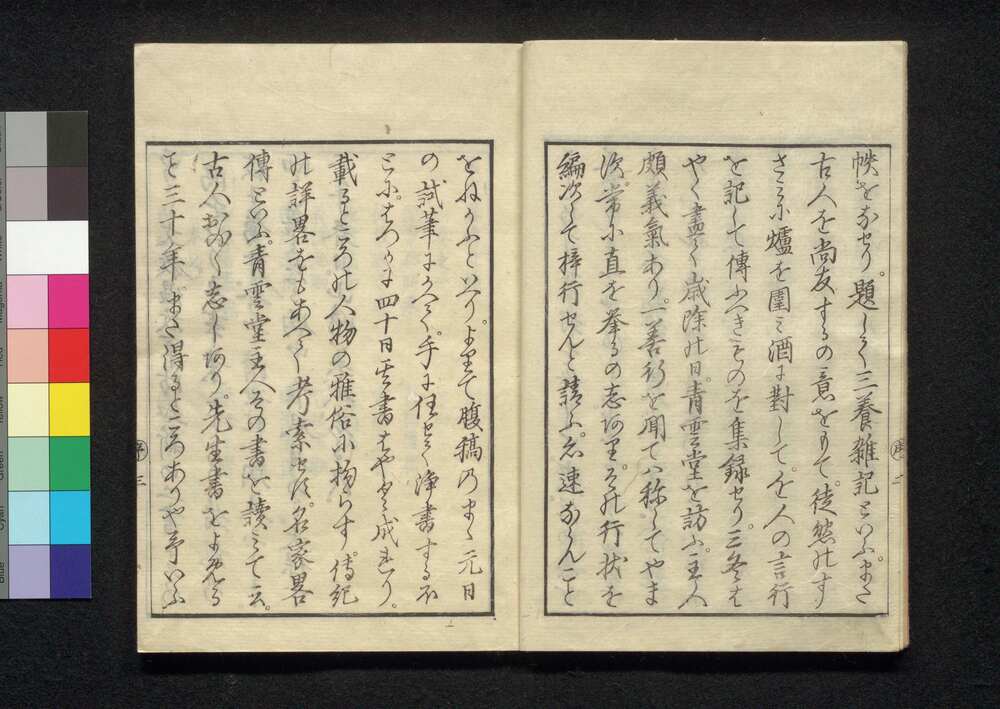 帙をなせり。題して三養雑記といふ。また
古人を尚友するの意をもて。徒然のす
さみに爐を圍み酒に對して。人の言行
を記して傳ふべきものを集録せり。三冬も
やゝ盡く歳除の日。青雲堂を訪ふ。主人
頗義氣あり。一善行を聞てハ称してやま
次。常に直を挙るの志あり。その行状を
編次して梓行せんと請ふ。速ならんこと
をねがふといへり。よりて腹稿のまゝ元日
の試筆にかへて。手に任せて浄書するほ
とに。はつかに四十日。書はやく成れり。
載るところの人物の雅俗に拘らす。傳紀
の詳畧をもあへて考索せす。名家畧
傳といふ。青雲堂主人この書を讀みて云。
古人おほく志しあり。先生書をよめる
を三十年。また得るところありや。予いふ
序二
序三